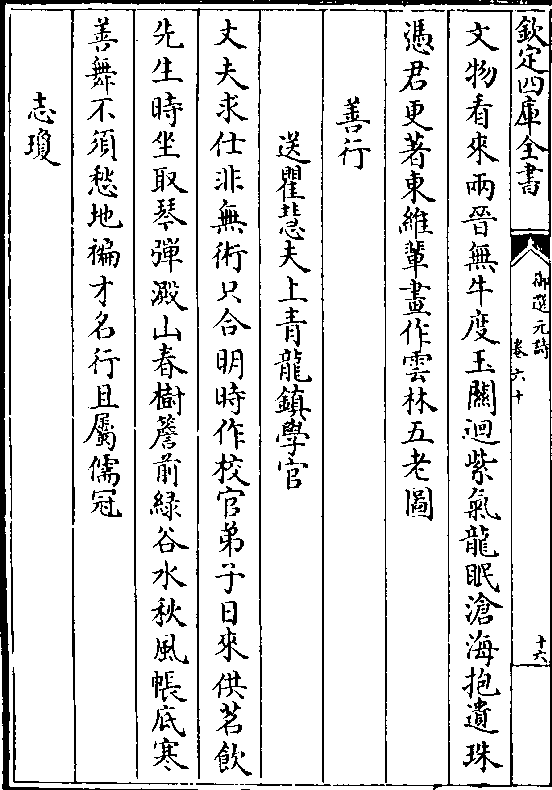 欽定四庫全書
御選元詩
卷六十
十六
文物看來兩晉無牛度玉關迴紫氣龍眠滄海抱遺珠
憑君更著東維輩畫作雲林五老圖
善行
送瞿慧夫上青龍鎮學官
丈夫求仕非無術只合明時作校官弟子日來供茗飲
先生時坐取琴彈澱山春樹簷前綠谷水秋風帳底寒
善舞不須愁地褊才名行且屬儒冠
志瓊